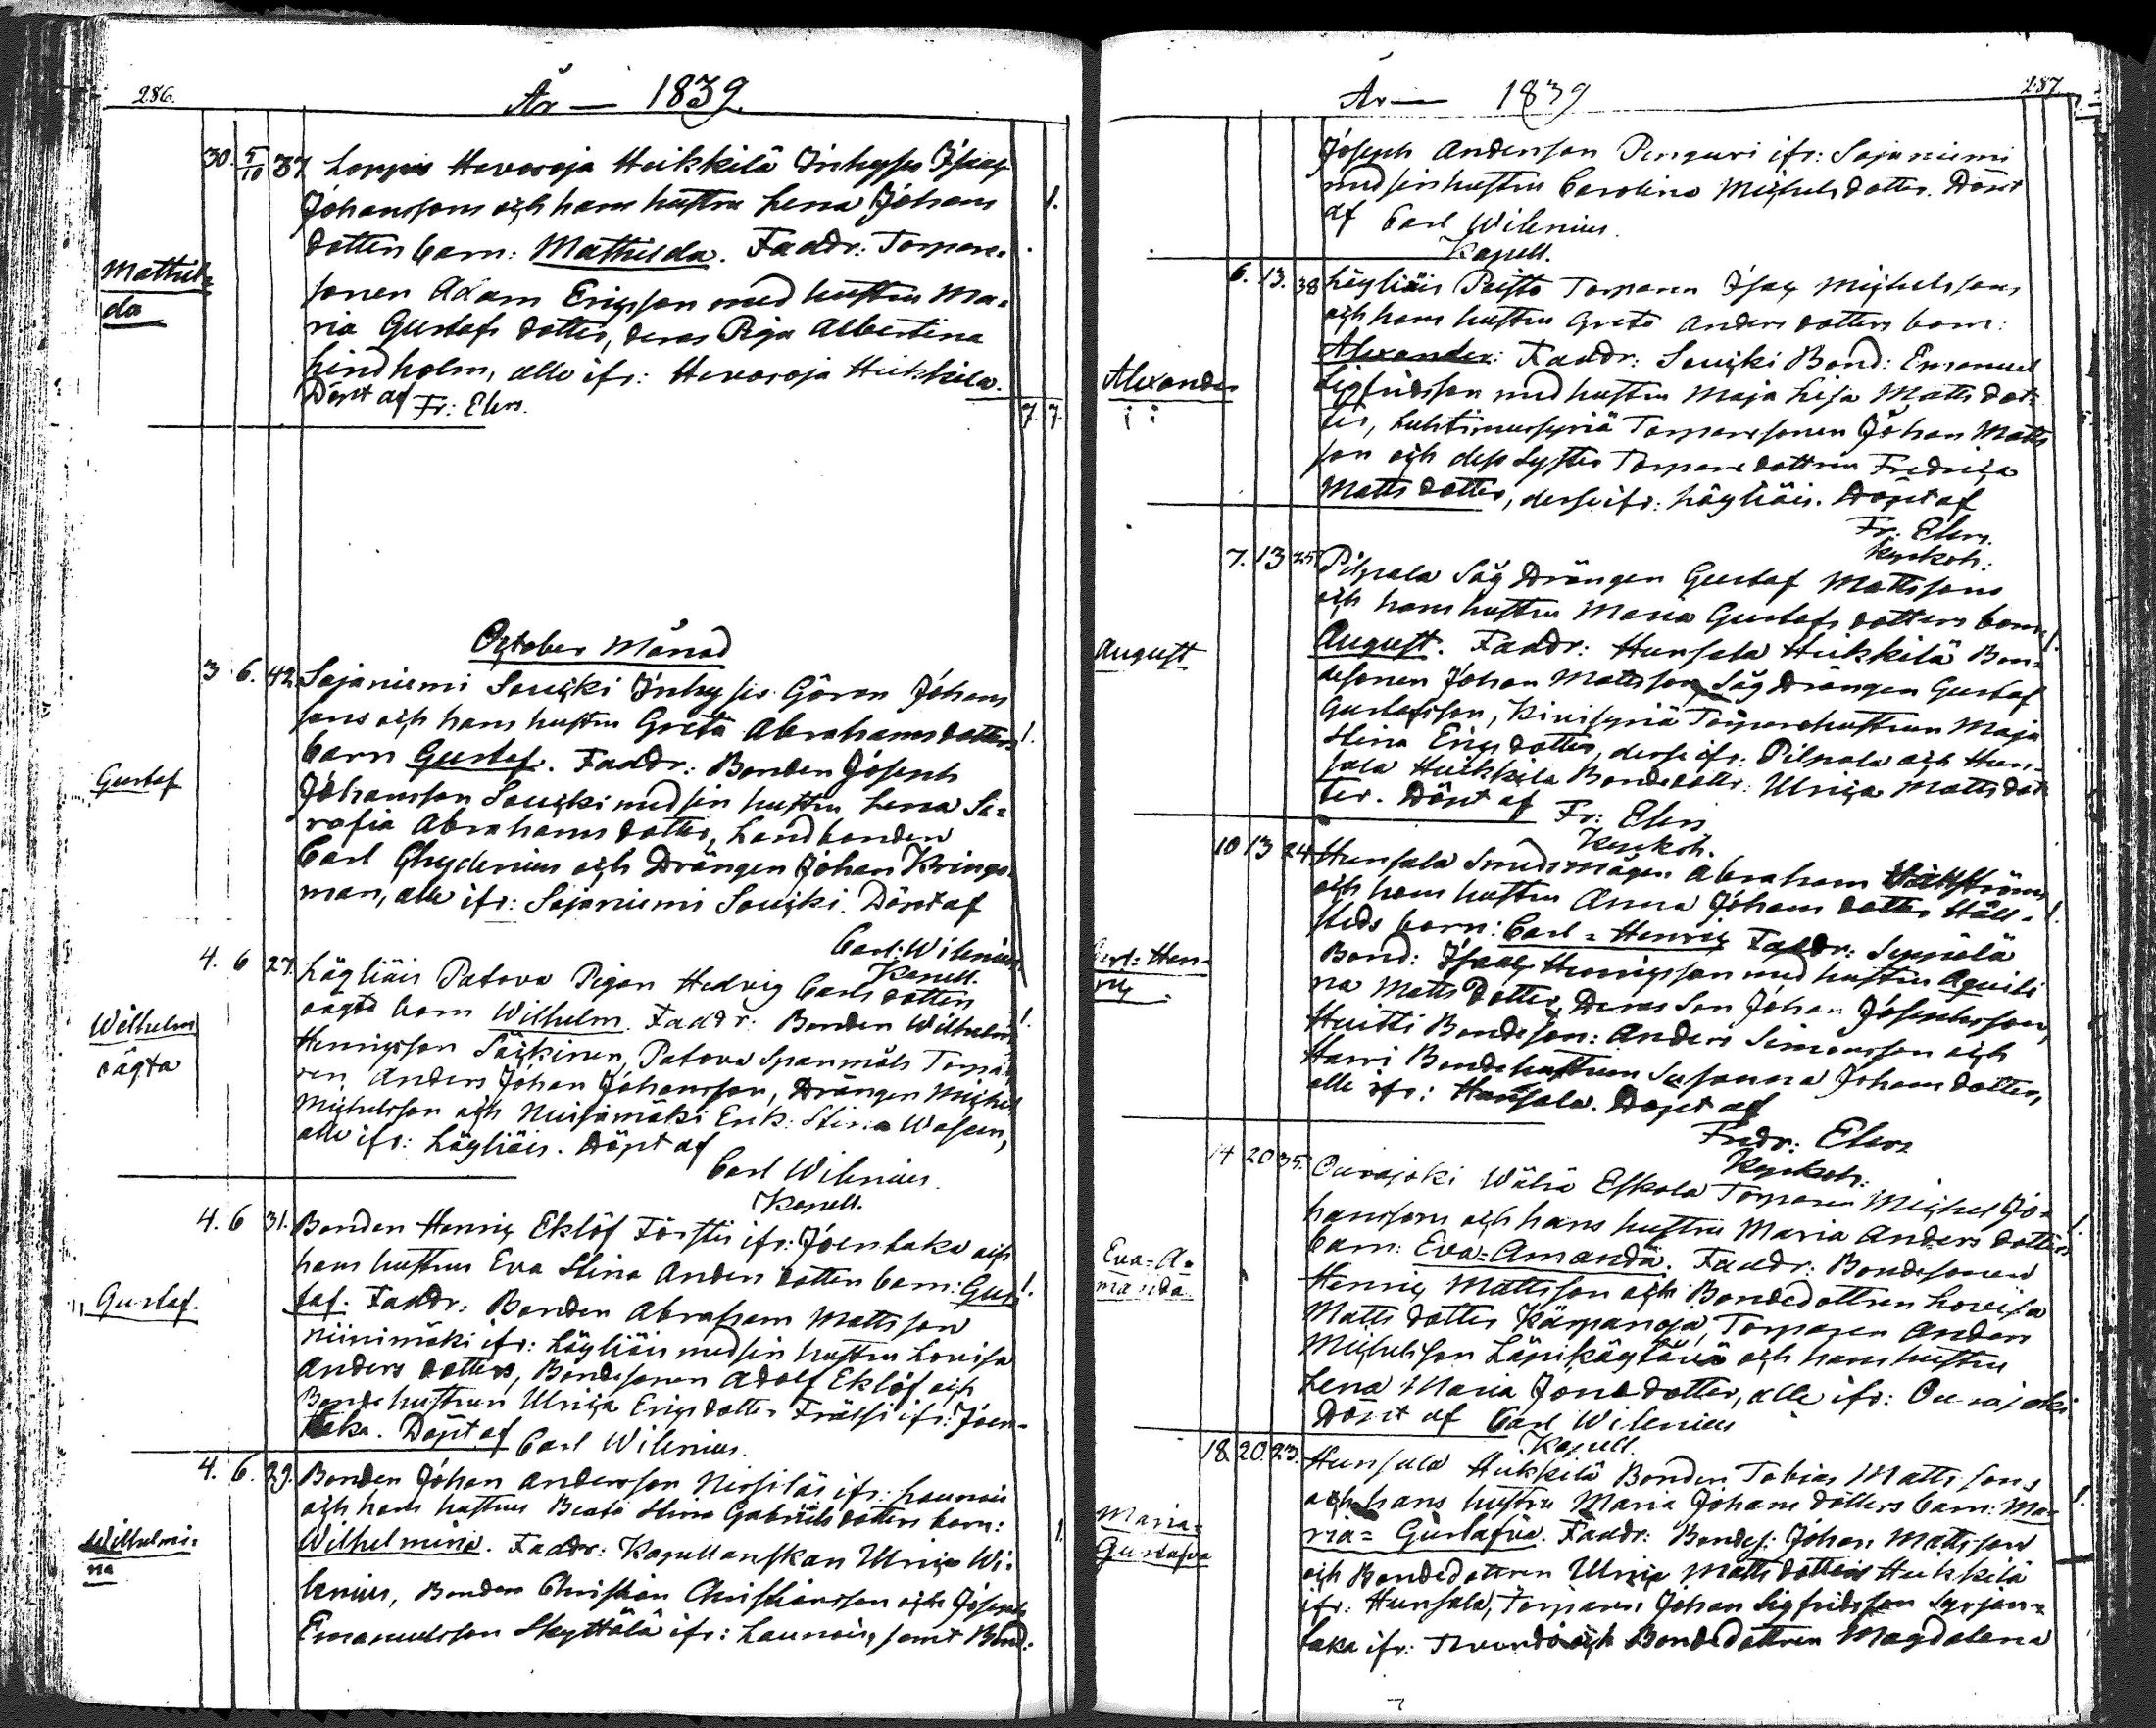 286.
År — 1839
30. 5/10 37 Loppis Hevosoja Heikkilä Inhyses Isaac
Johanssons och hans hustru Lena Johans
dotters barn: Mathilda. Faddr: Torpare=
sonen Adam Ericsson med hustru Ma=
ria Gustafs dotter, deras Piga Albertina
Lindholm, alle ifr: Hevosoja Heikkilä.
Döpt af Fr: Elers.
Mathil=
da
1.
7. 7.
October Månad
3 6. 42 Sajaniemi Soucki Inhyses Göran Johans
sons och hans hustru Greta Abrahamsdotters
barn Gustaf. Faddr: Bonden Joseph
Johansson Soucki med sin hustru Lena Se=
rafia Abrahams dotter, Landbonden
Carl Chydenius och Drängen Johan Krings=
man, alle ifr: Sajaniemi Soucki. Döpt af
Carl: Wilenius
Kapell.
Gustaf
4. 6 27. Läyliäis Patova Pigan Hedvig Carls dotters
oägta barn Wilhelm. Faddr: Bonden Wilhelm
Henricsson Säikinen, Patova Spanmåls Torpa
ren Anders Johan Johansson, Drängen Michel
Michelsson och Nuijamäki Enk: Stina Wasen,
alle ifr: Läyliäis. Döpt af
Carl Wilenius.
Kapell.
Wilhelm
oägta
4. 6 31. Bonden Henric Eklöf Försti ifr: Joentaka och
hans hustrus Eva Stina Anders dotters barn: Gus
taf. Faddr: Bonden Abraham Mattsson
Niinimäki ifr: Läyliäis med sin hustru Lovisa
Anders dotter, Bondesonen Adolf Eklöf och
Bondehustrun Ulrica Erics dotter Frälsi ifr: Joen=
taka. Döpt af Carl Wilenius.
Gustaf.
4. 6. 29. Bonden Johan Andersson Nissiläs ifr: Launois
och hans hustrus Beata Stina Gabriels dotters barn:
Wilhelmina. Faddr: Kapellanskan Ulrica Wi=
lenius, Bonden Christian Christiansson och Joseph
Emanuelsson Skyttälä ifr: Launois, samt Bond:
Wilhelmi=
na
287.
År — 1839
Joseph Andersson Penguri ifr: Sajaniemi
med sin hustru Carolina Michelsdotter. Döpt
af Carl Wilenius.
Kapell.
6. 13. 38 Läyliäis Poisto Torparen Isac Michelssons
och hans hustru Greta Anders dotters barn:
Alexander: Faddr: Soucki Bond: Emanuel
Sigfridsson med hustru Maja Lisa Matts dot=
ter, Luhtimussyriä Torparesonen Johan Matts
son och dess Syster Torpare dottren Fredrica
Matts dotter, desse ifr: Läyliäis. Döpt af
Fr: Elers.
Kyrkoh:
Alexander
7. 13 25 Pilpala Såg Drängen Gustaf Mattssons
och hans hustru Maria Gustafs dotters barn
August. Faddr: Hunsala Heikkilä Bon=
desonen Johan Mattsson, Såg Drängen Gustaf
Gustafsson, Kivisyriä Torparehustrun Maja
Stina Erics dotter, desse ifr: Pilpala och Hun=
sala Heikkilä Bondedottr: Ulrica Matts dot
ter. Döpt af Fr: Elers
Kyrkoh.
August
10 13 24 Hunsala Smedsmågen Abraham
och hans hustru Anna Johans dotter Häll=
steds barn: Carl=Henric Faddr: Seppälä
Bond: Isaac Henricsson med hustru Aquili
na Matts dotter, Deras Son Johan Josephsson,
Huitti Bondeson: Anders Simonsson och
Harri Bondehustrun Susanna Johans dotter,
alle ifr: Hunsala. Döpt af
Fredr: Elers
Kyrkoh:
Carl=Hen=
ric
14 20 35. Ourajoki Wähä Eskola Torparen Michel Jo=
hanssons och hans hustrus Maria Anders dotters
barn: Eva=Amanda. Faddr: Bondesonen
Henric Mattsson och Bondedottren Lovisa
Matts dotter Kärpänoja, Torparen Anders
Michelsson Läpikäytävä och hans hustru
Lena Maria Jonæ dotter, alle ifr: Ourajoki
Döpt af Carl Wilenius
Kapell.
Eva=A=
manda
18. 20. 23. Hunsala Heikkilä Bonden Tobias Mattssons
och hans hustru Maria Johans dotters barn: Ma=
ria=Gustafva. Faddr: Bondes: Johan Mattsson
och Bondedottren Ulrica Matts dotter Heikkilä
ifr: Hunsala, Torparen Johan Sigfridsson Syrjän=
taka ifr: Tervundö och Bondedottren Magdalena
Maria=
Gustafva